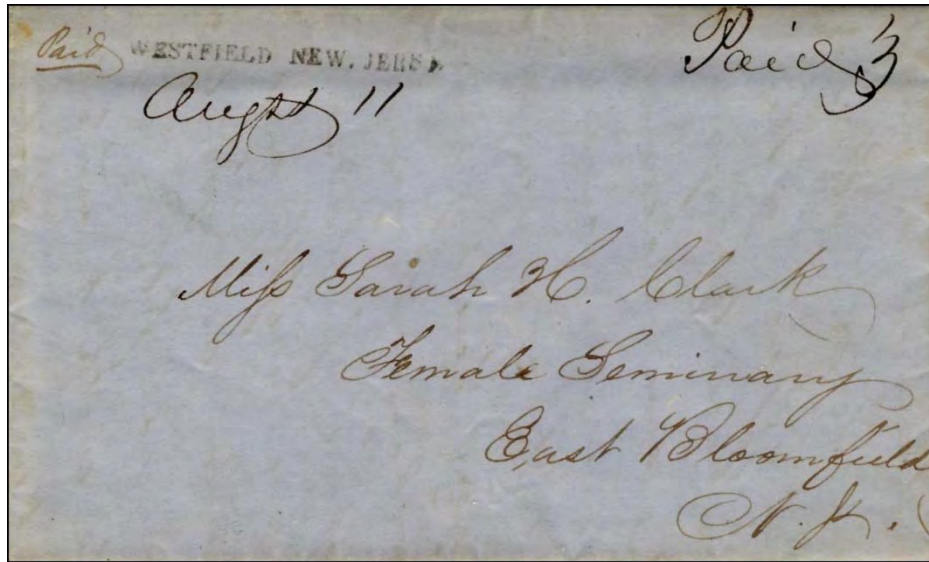 Paid WESTFIELD NEW. JERSE Paid 3
Augst 11
Miſs Sarah H. Clark
Female Seminary
East Bloomfield
N. Y.